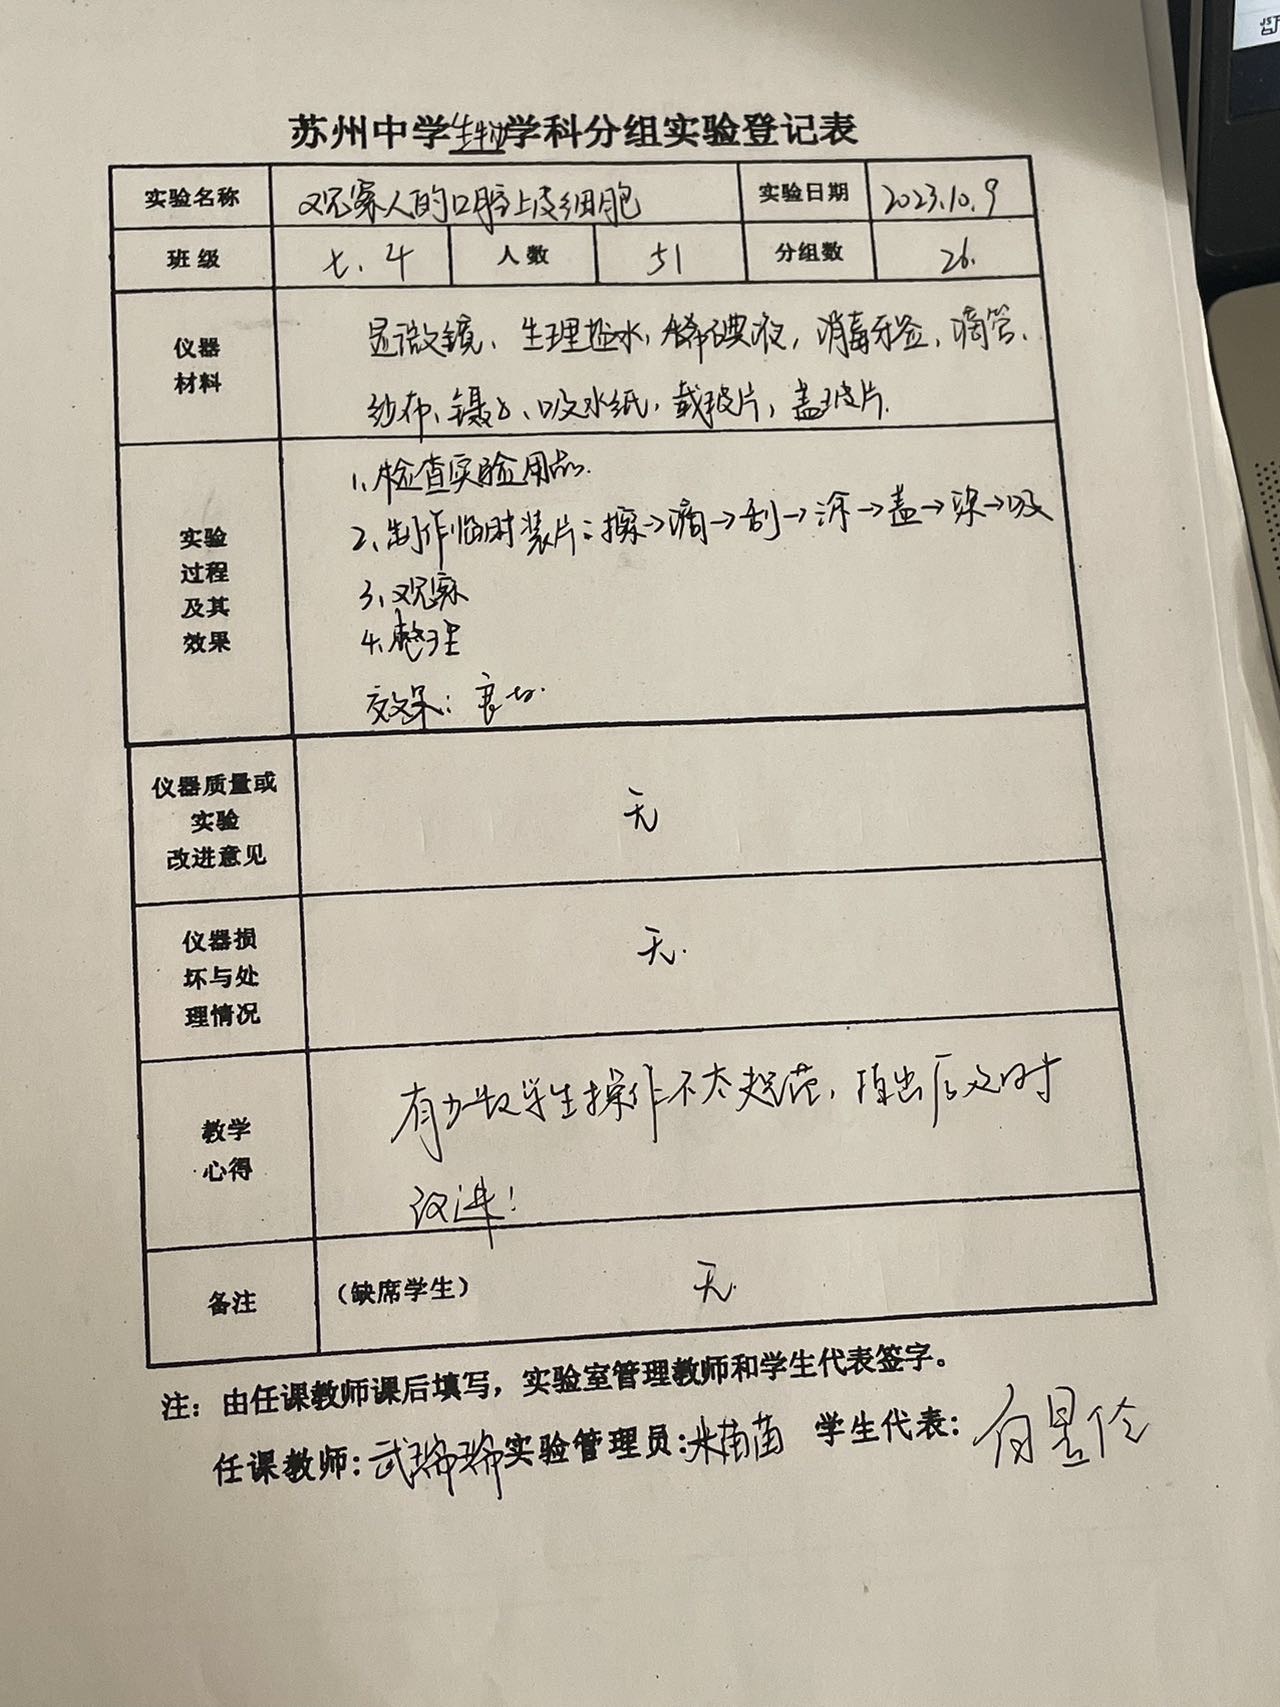 苏州中学生物学科分组实验登记表
实验名称 观察人的口腔上皮细胞 实验日期 2023.10.9
班级 七.4 人数 51 分组数 26.
仪器
材料
显微镜、生理盐水,稀碘液,消毒牙签,滴管、
纱布、镊子、吸水纸,载玻片,盖玻片.
实验
过程
及其
效果
1、检查实验用品.
2、制作临时装片:擦→滴→刮→涂→盖→染→吸
3、观察
4、整理
效果:良好.
仪器质量或
实验
改进意见
无
仪器损
坏与处
理情况
无.
教学
心得
有少数学生操作不太规范,指出后及时
改进!
备注
(缺席学生) 无.
注:由任课教师课后填写,实验室管理教师和学生代表签字。
任课教师:武瑞瑞 实验管理员:米苗苗 学生代表: